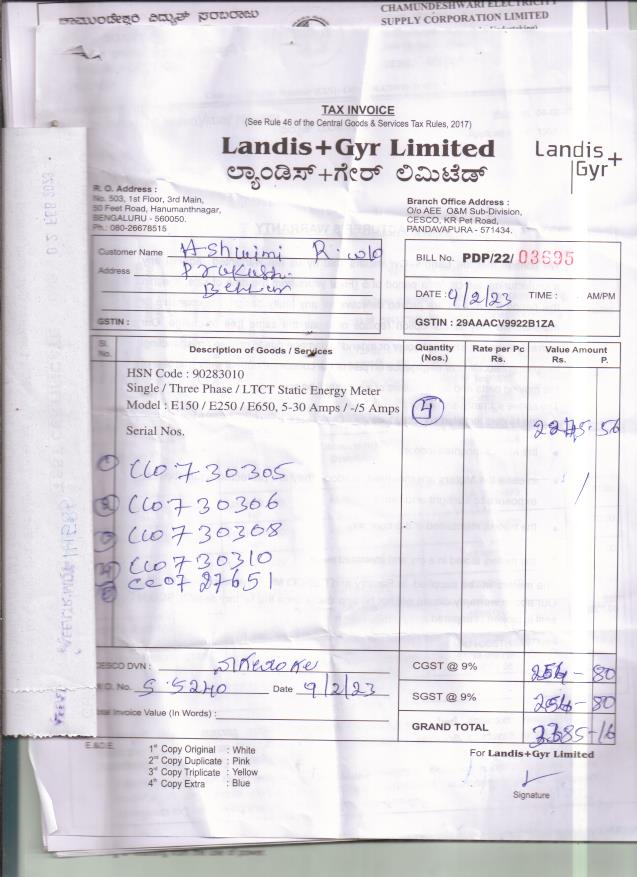 ಚಾಮುಂಡೇಶ್ವರಿ ವಿದ್ಯುತ್ ಸರಬರಾಜು
CHAMUNDESHWARI ELECTRICITY
SUPPLY CORPORATION LIMITED
TAX INVOICE
(See Rule 46 of the Central Goods & Services Tax Rules, 2017)
Landis+Gyr Limited
ಲ್ಯಾಂಡಿಸ್+ಗೇರ್ ಲಿಮಿಟೆಡ್
Landis
Gyr+
R. O. Address :
No. 503, 1st Floor, 3rd Main,
50 Feet Road, Hanumanthnagar,
BENGALURU - 560050.
Ph.: 080-26678515
Branch Office Address :
O/o AEE O&M Sub-Division,
CESCO, KR Pet Road,
PANDAVAPURA - 571434.
Customer Name Ashwini R. w/o
Address Prakash
BILL No. PDP/22/ 03695
DATE : 9/2/23 TIME : AM/PM
GSTIN :
GSTIN : 29AAACV9922B1ZA
Sl. No. Description of Goods / Services Quantity (Nos.) Rate per Pc Rs. Value Amount Rs. P.
HSN Code : 90283010
Single / Three Phase / LTCT Static Energy Meter
Model : E150 / E250 / E650, 5-30 Amps / -/5 Amps 4
Serial Nos.
CC0730305
CC0730306
CC0730308
CC0730310
CC0727651
CESCO DVN :
W.O. No. S-5240 Date 9/2/23
Total Invoice Value (In Words) :
CGST @ 9% 254-80
SGST @ 9% 254-80
GRAND TOTAL
E.&O.E.
1st Copy Original : White
2nd Copy Duplicate : Pink
3rd Copy Triplicate : Yellow
4th Copy Extra : Blue
For Landis+Gyr Limited
Signature
02 FEB 2023